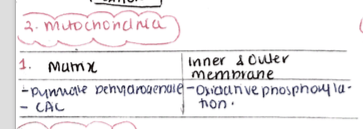 2. mitochondria
1. Matrix
Inner & Outer
membrane
- Pyruvate Dehydrogenase
- Oxidative phosphoryla-
tion.
- CAC